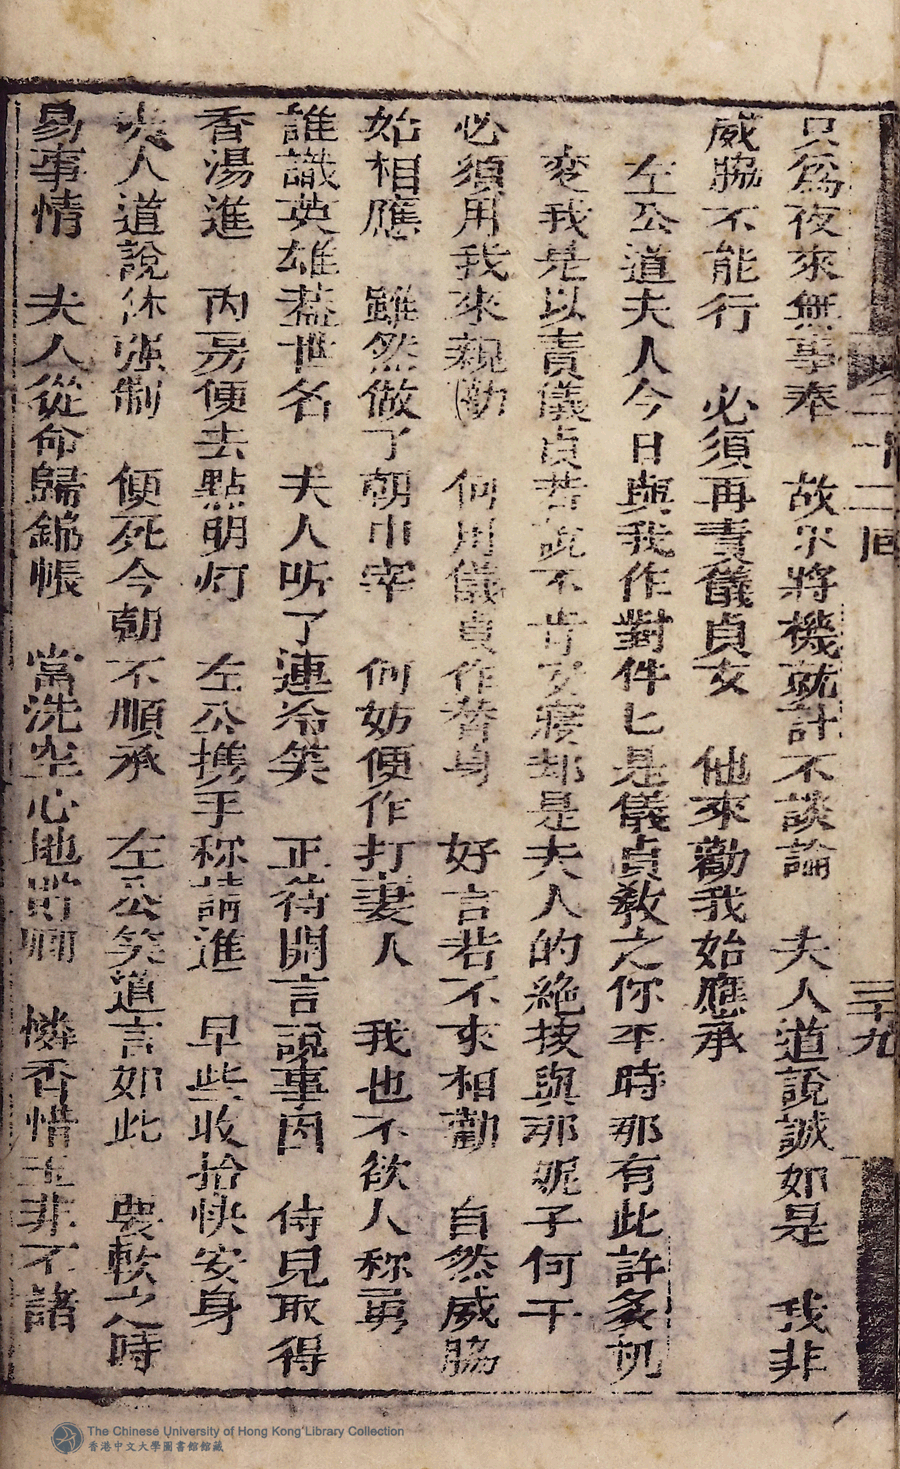 二十二回 三十九
只為夜來無事奉 故尔將機就計不談論 夫人道說誠如是 我非
威脇不能行 必須再責儀貞女 他來勸我始應承
左公道夫人今日與我作對件匕是儀貞敎之你平時那有此許多机
变我是以責儀貞若說不肯 却是夫人的絶技與那妮子何干
必須用我來親勸 何用儀貞作替身 好言若不來相勸 自然威脇
始相應 雖然做了朝巾宰 何妨便作打妻人 我也不欲人称勇
誰識英雄蓋世名 夫人听了連冷笑 正待開言說事因 侍見取得
香湯進 内房便去點明灯 左公携手称請進 早些收拾快安身
夫人道說休强制 便死今朝不順承 左公笑道言如此 要軟之時
易事情 夫人從命歸錦帳 當洗空心地 憐香惜玉非不諸
The Chinese University of Hong Kong Library Collection
香港中文大學圖書館館藏